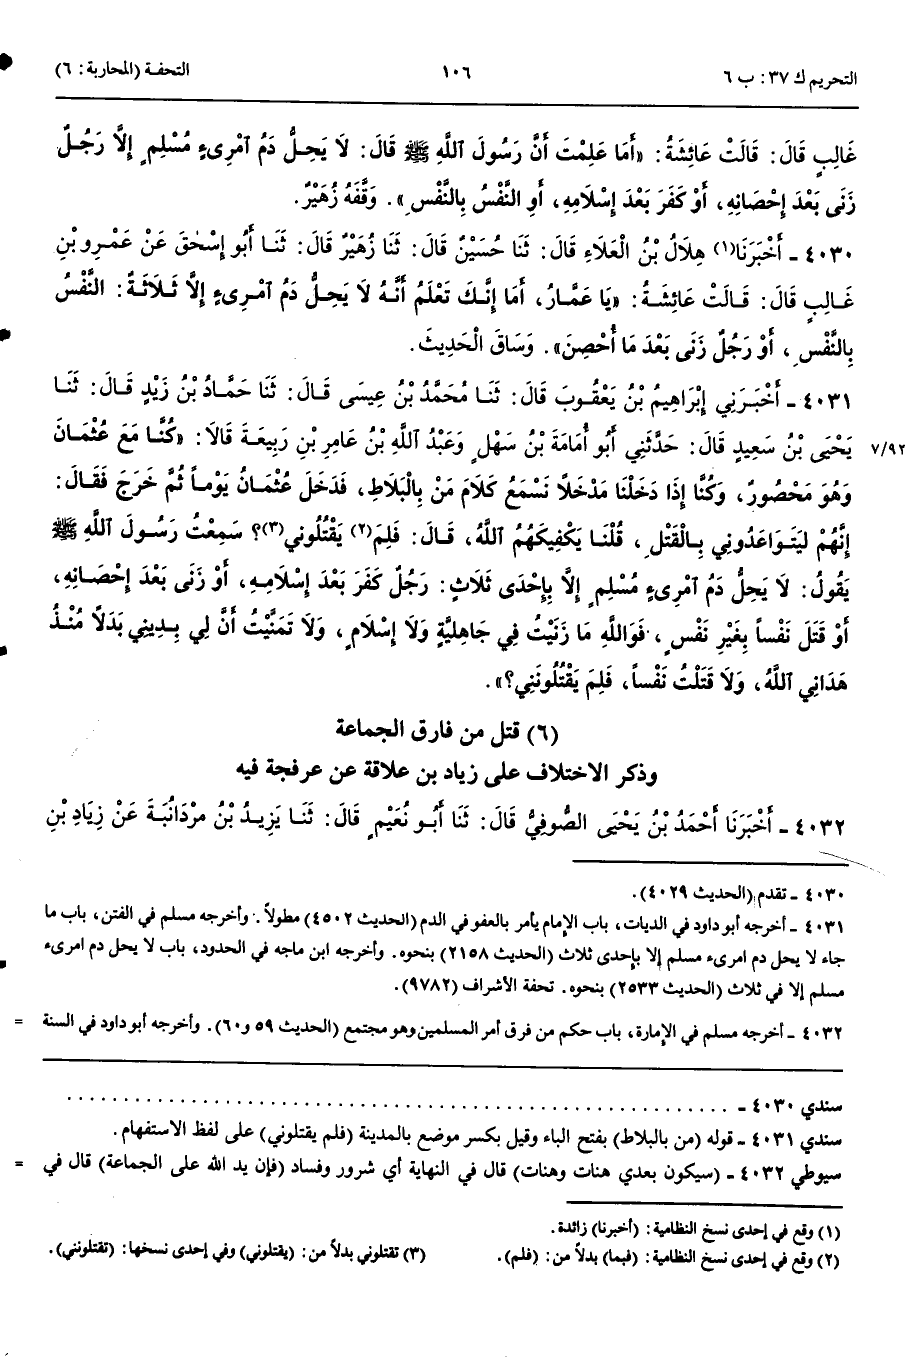 التحريم ك ٣٧: ب ٦
١٠٦
التحفة (المحاربة: ٦)
غَالِبٍ قَالَ: قَالَتْ عَائِشَةُ: «أَمَا عَلِمْتَ أَنَّ رَسُولَ ٱللَّهِ ﷺ قَالَ: لَا يَحِلُّ دَمُ ٱمْرِىءٍ مُسْلِمٍ إِلَّا رَجُلٌ
زَنَى بَعْدَ إِحْصَانِهِ، أَوْ كَفَرَ بَعْدَ إِسْلَامِهِ، أَوِ النَّفْسُ بِالنَّفْسِ». وَقَّفَهُ زُهَيْرٌ.
٤٠٣٠ ـ أَخْبَرَنَا(١) هِلَالُ بْنُ الْعَلَاءِ قَالَ: ثَنَا حُسَيْنٌ قَالَ: ثَنَا زُهَيْرٌ قَالَ: ثَنَا أَبُو إِسْحٰقَ عَنْ عَمْرِو بْنِ
غَالِبٍ قَالَ: قَالَتْ عَائِشَةُ: «يَا عَمَّارُ، أَمَا إِنَّكَ تَعْلَمُ أَنَّهُ لَا يَحِلُّ دَمُ ٱمْرِىءٍ إِلَّا ثَلَاثَةٌ: النَّفْسُ
بِالنَّفْسِ، أَوْ رَجُلٌ زَنَى بَعْدَ مَا أُحْصِنَ». وَسَاقَ الْحَدِيثَ.
٤٠٣١ ـ أَخْبَرَنِي إِبْرَاهِيمُ بْنُ يَعْقُوبَ قَالَ: ثَنَا مُحَمَّدُ بْنُ عِيسَى قَالَ: ثَنَا حَمَّادُ بْنُ زَيْدٍ قَالَ: ثَنَا
يَحْيَى بْنُ سَعِيدٍ قَالَ: حَدَّثَنِي أَبُو أُمَامَةَ بْنُ سَهْلٍ وَعَبْدُ ٱللَّهِ بْنُ عَامِرِ بْنِ رَبِيعَةَ قَالَا: «كُنَّا مَعَ عُثْمَانَ
٧/٩٢
وَهُوَ مَحْصُورٌ، وَكُنَّا إِذَا دَخَلْنَا مَدْخَلاً نَسْمَعُ كَلَامَ مَنْ بِالْبَلَاطِ، فَدَخَلَ عُثْمَانُ يَوْماً ثُمَّ خَرَجَ فَقَالَ:
إِنَّهُمْ لَيَتَوَاعَدُونِي بِالْقَتْلِ، قُلْنَا يَكْفِيكَهُمُ ٱللَّهُ، قَالَ: فَلِمَ(٢) يَقْتُلُونِي(٣)؟ سَمِعْتُ رَسُولَ ٱللَّهِ ﷺ
يَقُولُ: لَا يَحِلُّ دَمُ ٱمْرِىءٍ مُسْلِمٍ إِلَّا بِإِحْدَى ثَلَاثٍ: رَجُلٌ كَفَرَ بَعْدَ إِسْلَامِهِ، أَوْ زَنَى بَعْدَ إِحْصَانِهِ،
أَوْ قَتَلَ نَفْساً بِغَيْرِ نَفْسٍ، فَوَاللَّهِ مَا زَنَيْتُ فِي جَاهِلِيَّةٍ وَلَا إِسْلَامٍ، وَلَا تَمَنَّيْتُ أَنَّ لِي بِدِينِي بَدَلاً مُنْذُ
هَدَانِي ٱللَّهُ، وَلَا قَتَلْتُ نَفْساً، فَلِمَ يَقْتُلُونَنِي؟».
(٦) قتل من فارق الجماعة
وذكر الاختلاف على زياد بن علاقة عن عرفجة فيه
٤٠٣٢ ـ أَخْبَرَنَا أَحْمَدُ بْنُ يَحْيَى الصُّوفِيُّ قَالَ: ثَنَا أَبُو نُعَيْمٍ قَالَ: ثَنَا يَزِيدُ بْنُ مَرْدَانُبَةَ عَنْ زِيَادِ بْنِ
٤٠٣٠ ـ تقدم (الحديث ٤٠٢٩).
٤٠٣١ ـ أخرجه أبو داود في الديات، باب الإمام يأمر بالعفو في الدم (الحديث ٤٥٠٢) مطولاً. وأخرجه مسلم في الفتن، باب ما
جاء لا يحل دم امرىء مسلم إلا بإحدى ثلاث (الحديث ٢١٥٨) بنحوه. وأخرجه ابن ماجه في الحدود، باب لا يحل دم امرىء
مسلم إلا في ثلاث (الحديث ٢٥٣٣) بنحوه. تحفة الأشراف (٩٧٨٢).
٤٠٣٢ ـ أخرجه مسلم في الإمارة، باب حكم من فرق أمر المسلمين وهو مجتمع (الحديث ٥٩ و٦٠). وأخرجه أبو داود في السنة =
سندي ٤٠٣٠ ـ . . . . . . . . . . . . . . . . . . . . . . . . . . . . . . . . . . . . . . . .
سندي ٤٠٣١ ـ قوله (من بالبلاط) بفتح الباء وقيل بكسر موضع بالمدينة (فلم يقتلوني) على لفظ الاستفهام.
سيوطي ٤٠٣٢ ـ (سيكون بعدي هنات وهنات) قال في النهاية أي شرور وفساد (فإن يد الله على الجماعة) قال في =
(١) وقع في إحدى نسخ النظامية: (أخبرنا) زائدة.
(٢) وقع في إحدى نسخ النظامية: (فبما) بدلاً من: (فلم).
(٣) تقتلوني بدلاً من: (يقتلوني) وفي إحدى نسخها: (تقتلونني).